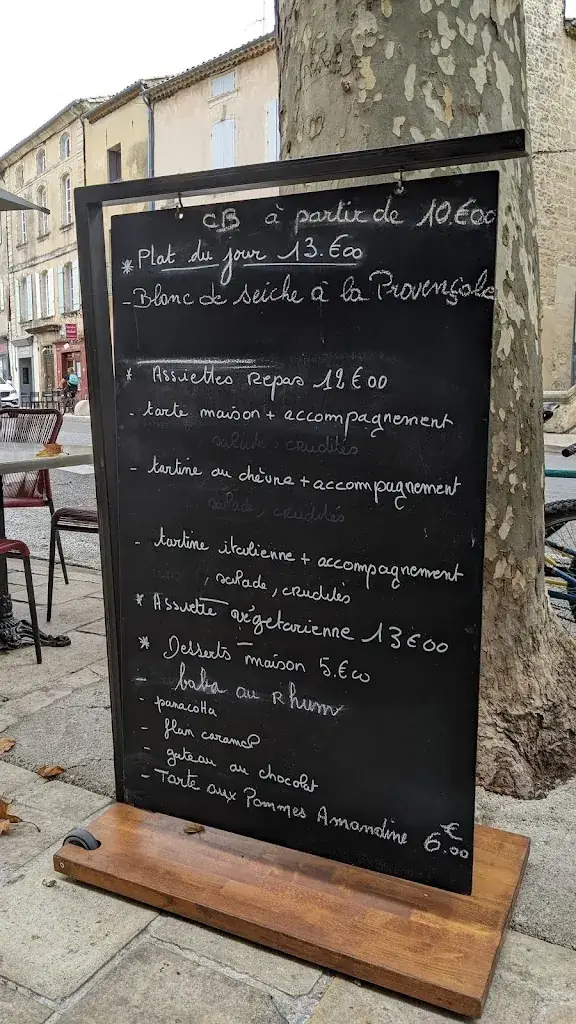 CB à partir de 10.€00
* Plat du jour 13.€00
- Blanc de seiche à la Provençale
* Assiettes repas 12€00
- tarte maison + accompagnement
salade, crudités
- tartine au chèvre + accompagnement
salade, crudités
- tartine italienne + accompagnement
, salade, crudités
* Assiette végétarienne 13€00
* Desserts maison 5.€00
- baba au Rhum
- panacotta
- flan caramel
- gateau au chocolat
- Tarte aux Pommes Amandine 6€.00